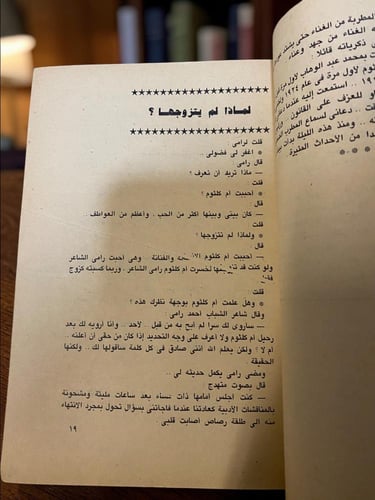 لماذا لم يتزوجها ؟
قلت لرامى
* اغفر لى فضولى ..
قال رامى
— ماذا تريد أن تعرف ؟
قلت
* أحببت أم كلثوم ؟
قال
— كان بينى وبينها أكثر من الحب . وأعظم من العواطف .
قلت
* ولماذا لم تتزوجها ؟
قال
— أحببت أم كلثوم والفنانة . وهى أحبت رامى الشاعر
ولو كنت قد لخسرت أم كلثوم رامى الشاعر . وربما كسبته كزوج
قلت
* وهل علمت أم كلثوم بوجهة نظرك هذه ؟
وقال شاعر الشباب أحمد رامى
— ساروى لك سرا لم أبح به من قبل .. لأحد .. وأنا أرويه لك بعد
رحيل أم كلثوم ولا أعرف على وجه التحديد إذا كان من حقى أن أعلنه .
أم لا ؛ ولكن يعلم الله أننى صادق فى كل كلمة سأقولها لك .. ولكنها
الحقيقة .
ومضى رامى يكمل حديثه لى ..
قال بصوت متهدج
— كنت أجلس أمامها ذات مساء بعد ساعات مليئة ومشحونة
بالمناقشات الأدبية كعادتنا عندما فاجأتنى بسؤال تحول بمجرد الانتهاء
منه الى طلقة رصاص أصابت قلبى .
١٩
المطربة من الغناء حتى
الغناء من جهد وعناء
ذكرياته قائلا
بمحمد عبد الوهاب لأول
كلثوم لأول مرة فى عام ١٩٢٤
استمعت إليه عندما
للعزف على القانون
دعانى لسماع المطرب
ومنذ هذه الليلة بدأت
من الأحداث المثيرة